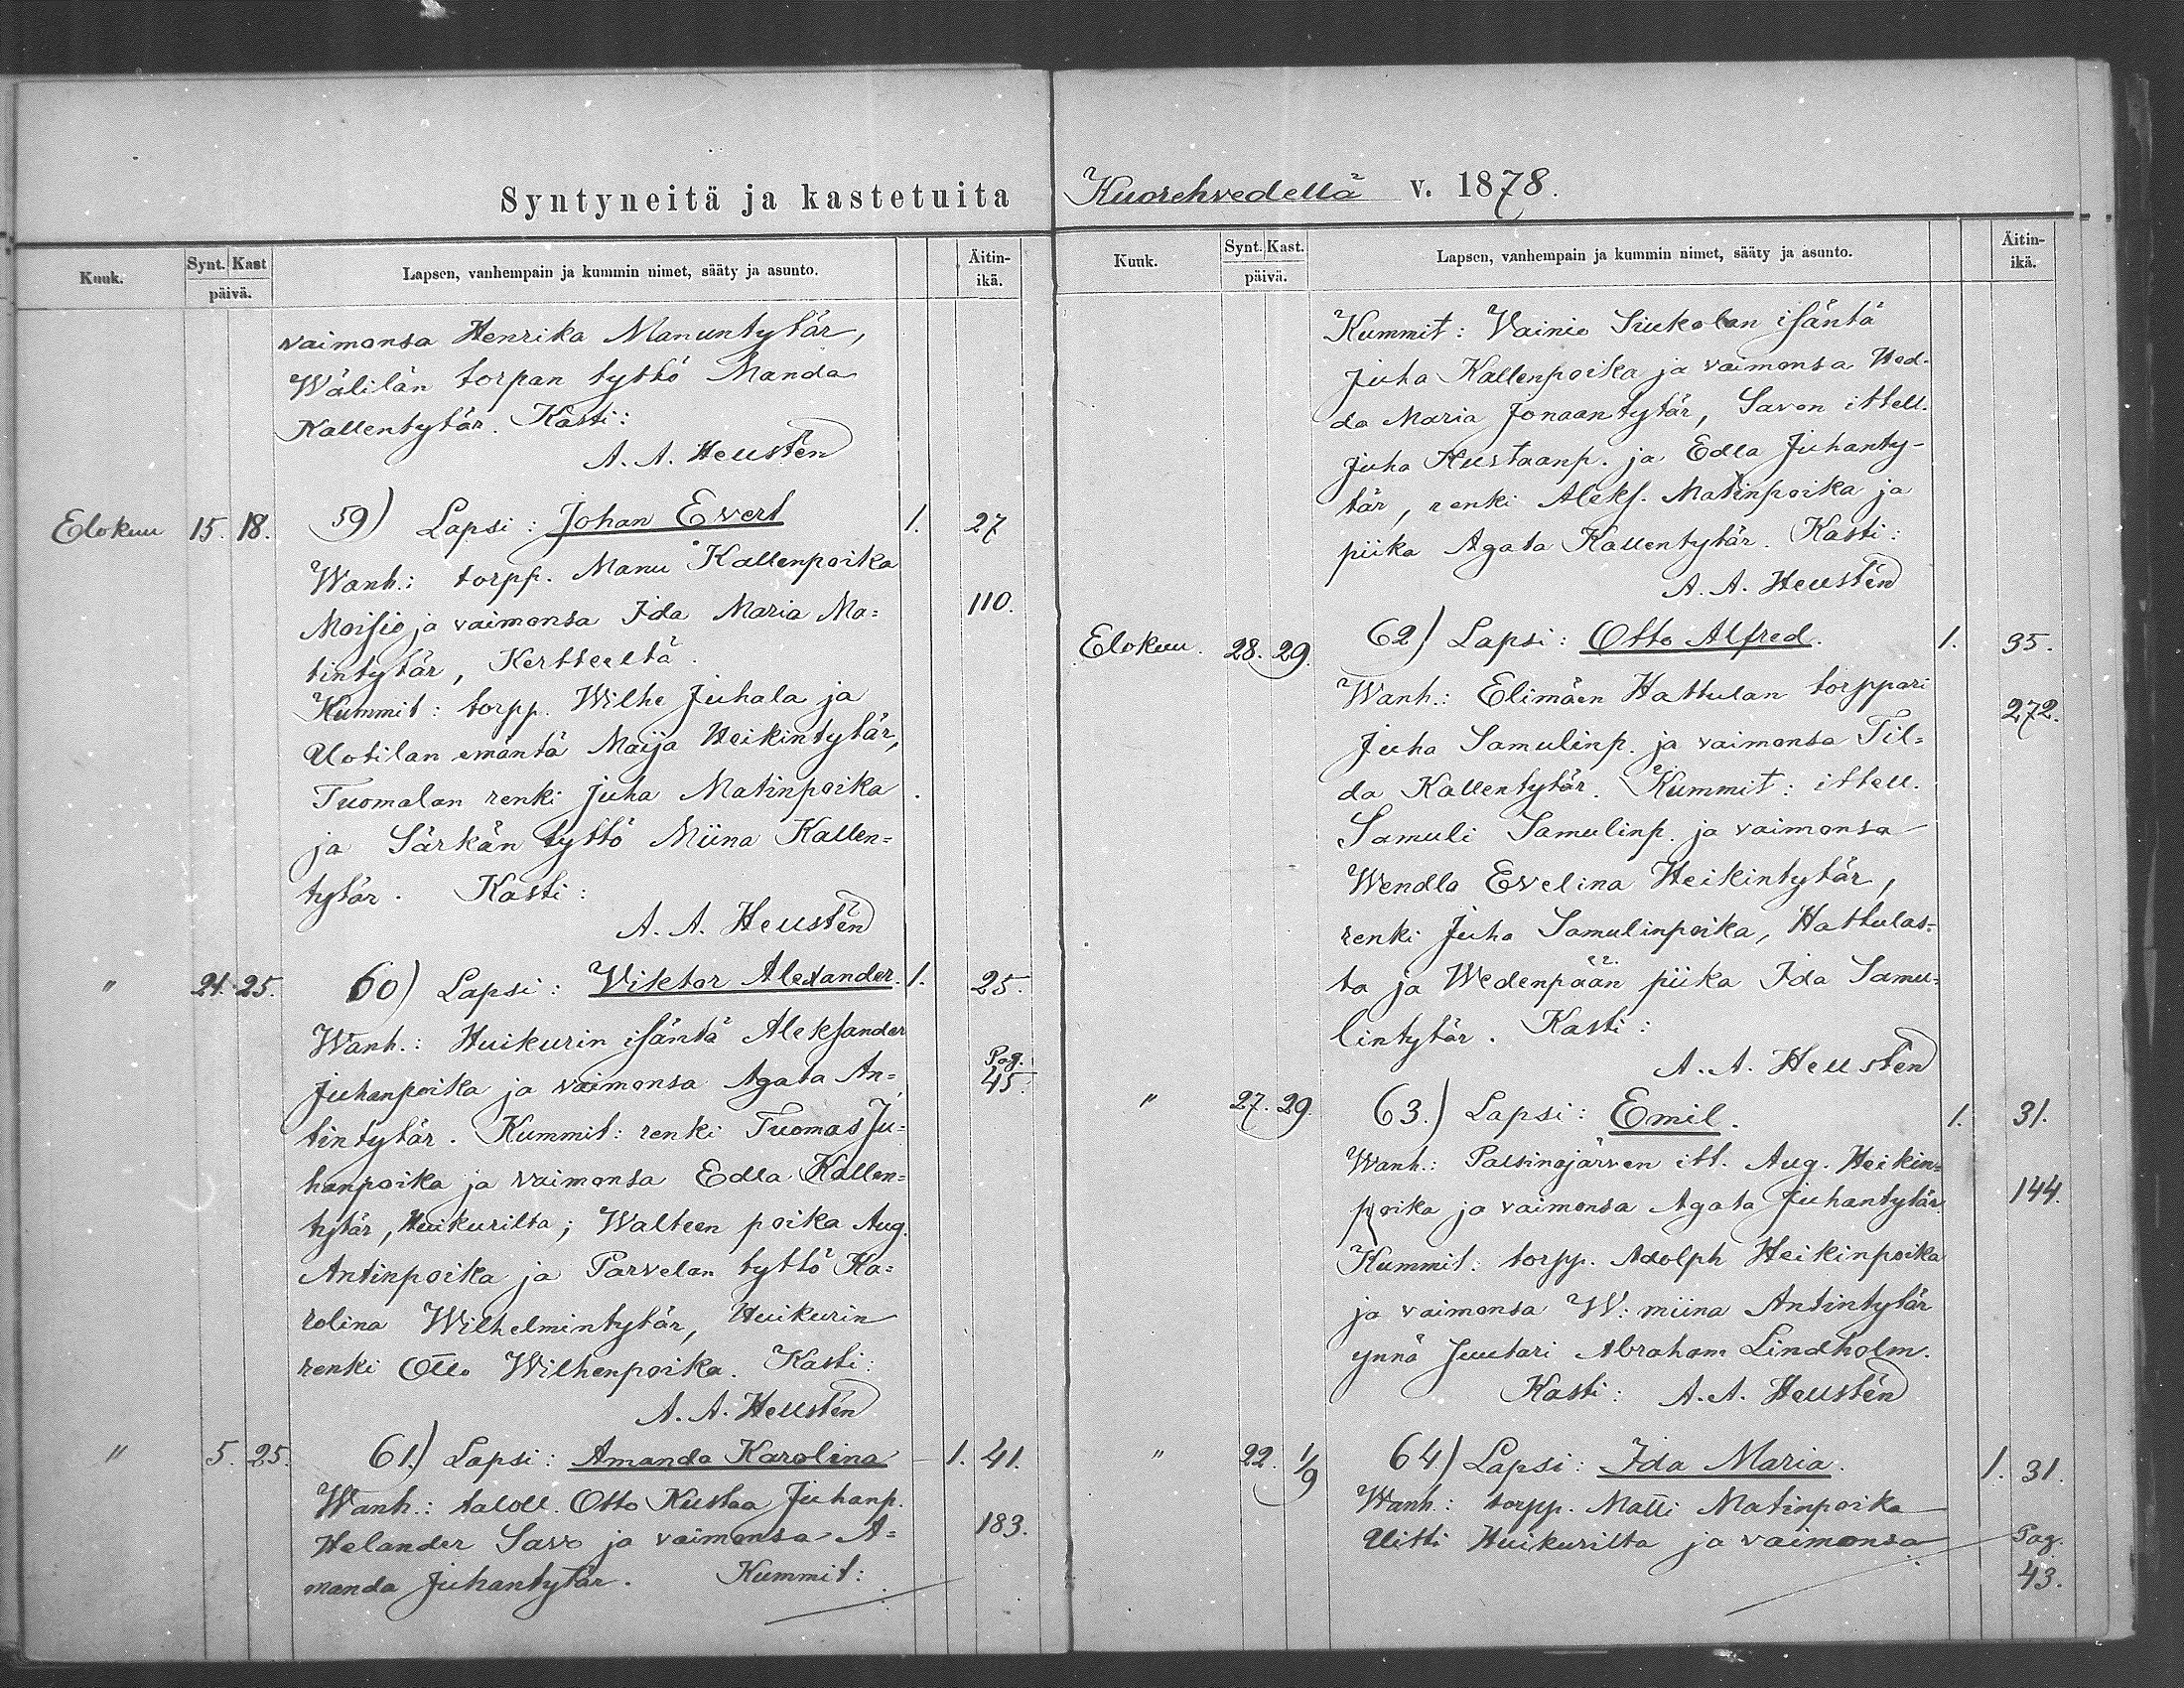 Syntyneitä ja kastetuita Kuorehvedellä v. 1878.
Kuuk.
Synt. Kast
päivä.
Lapsen, vanhempain ja kummin nimet, sääty ja asunto.
Äitin-
ikä.
vaimonsa Henrika Manuntytär,
Wälilän torpan tyttö Manda
Kallentytär. Kasti:
A. A. Hellstén
Elokuu 15. 18. 59) Lapsi: Johan Evert 1. 27
Wanh.: torpp. Manu Kallenpoika
Moisio ja vaimonsa Ida Maria Ma= 110.
tintytär, Kertteeltä.
Kummit: torpp. Wilhe Juhala ja
Uotilan emäntä Maija Heikintytär,
Tuomalan renki Juha Matinpoika
ja Särkän tyttö Miina Kallen=
tytär. Kasti:
A. A. Hellstén
" 21. 25. 60) Lapsi: Viktor Alexander. 1. 25.
Wanh.: Huikurin isäntä Aleksander
Pag.
Juhanpoika ja vaimonsa Agata An= 45.
tintytär. Kummit: renki Tuomas Ju=
hanpoika ja vaimonsa Edla Kallen=
tytär, Huikurilta; Walteen poika Aug.
Antinpoika ja Parvelan tyttö Ka=
rolina Wilhelmintytär, Huikurin
renki Otto Wilhenpoika. Kasti:
A. A. Hellstén
" 5. 25. 61.) Lapsi: Amanda Karolina 1. 41.
Wanh.: taloll. Otto Kustaa Juhanp.
Helander Savo ja vaimonsa A= 183.
manda Juhantytär. Kummit:
Kuuk.
Synt. Kast.
päivä.
Lapsen, vanhempain ja kummin nimet, sääty ja asunto.
Äitin-
ikä.
Kummit: Vainio Siukolan isäntä
Juha Kallenpoika ja vaimonsa Hed-
da Maria Jonaantytär, Savon ittell.
Juha Kustaanp. ja Edla Juhanty-
tär, renki Aleks. Matinpoika ja
piika Agata Kallentytär. Kasti:
A. A. Hellstén
Elokuu. 28. 29. 62) Lapsi: Otto Alfred. 1. 35.
Wanh.: Elimäen Hattulan torppari
272.
Juha Samulinp. ja vaimonsa Til=
da Kallentytär. Kummit: ittell.
Samuli Samulinp. ja vaimonsa
Wendla Evelina Heikintytär,
renki Juha Samulinpoika, Hattulas=
ta ja Wedenpään piika Ida Samu=
lintytär. Kasti:
A. A. Hellstén
" 27. 29. 63.) Lapsi: Emil. 1. 31.
Wanh.: Palsinajärven itt. Aug. Heikin=
poika ja vaimonsa Agata Juhantytär. 144.
Kummit: torpp. Adolph Heikinpoika
ja vaimonsa W: miina Antintytär
ynnä Juutari Abraham Lindholm.
Kasti: A. A. Hellstén
" 22. 1/9 64) Lapsi: Ida Maria. 1. 31.
Wanh.: torpp. Matti Matinpoika
Uitti Huikurilta ja vaimonsa Pag.
43.